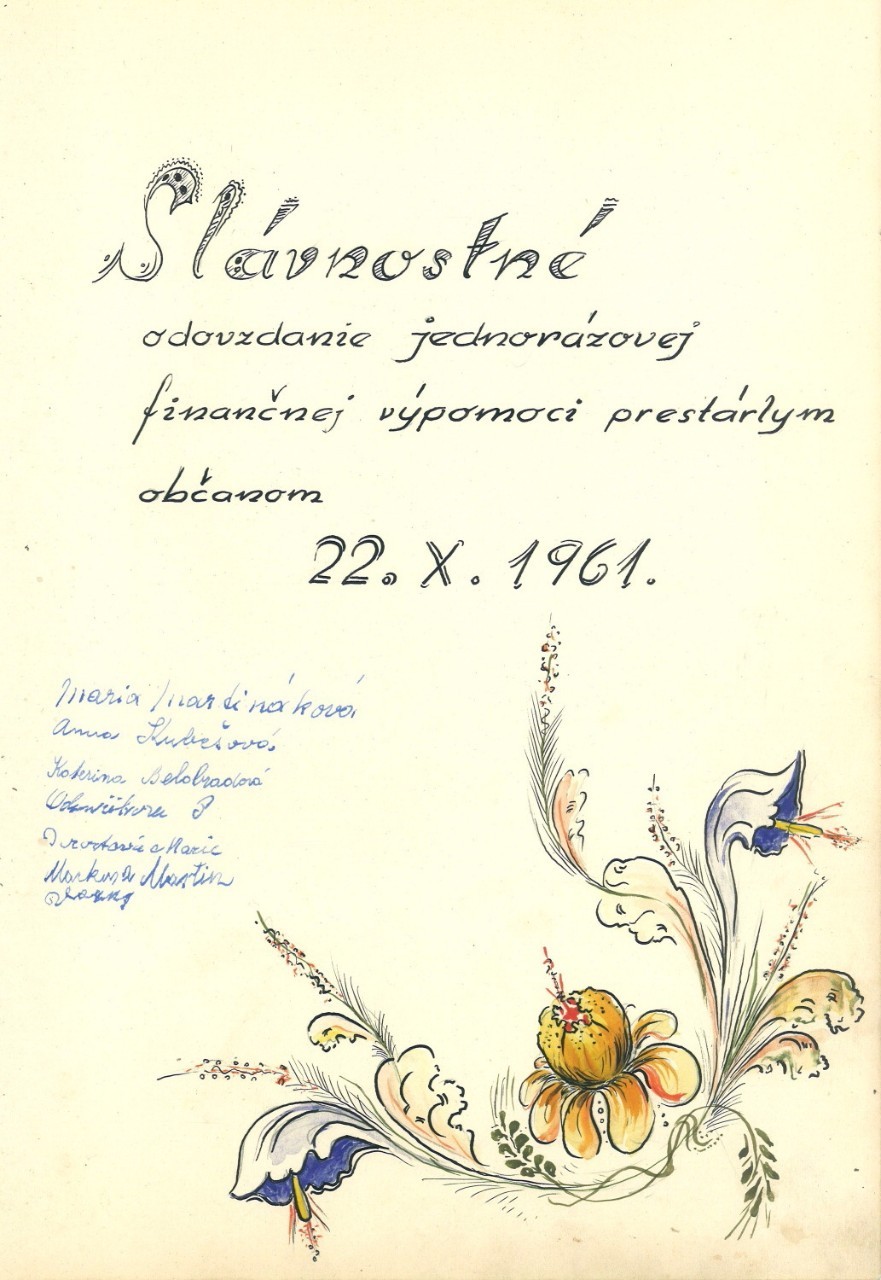 Slávnostné
odovzdanie jednorázovej
finančnej výpomoci prestárlym
občanom
22. X. 1961.
Maria Martináková
Anna Kubešová
Katerina Belobradová
Marie
Martin